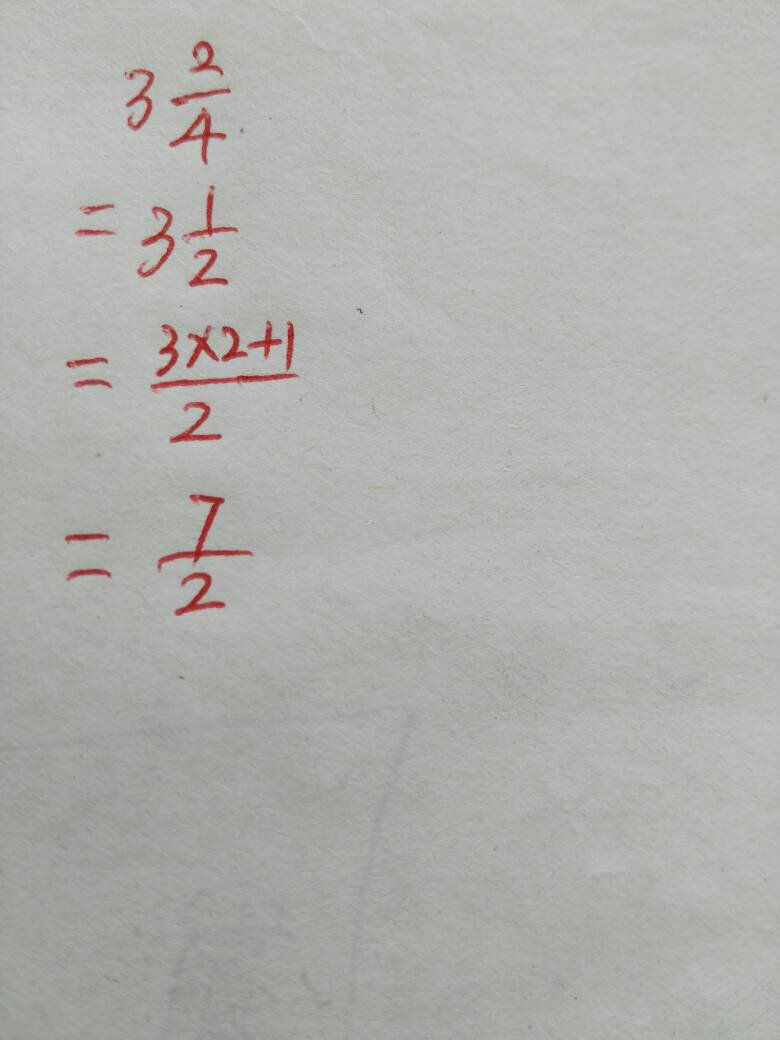 3 2/4
= 3 1/2
= (3×2+1)/2
= 7/2